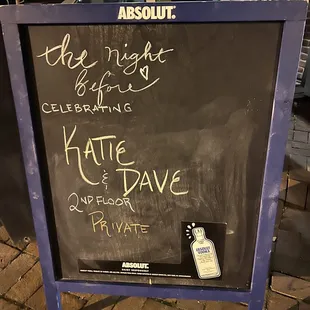 ABSOLUT.
the night
before
CELEBRATING
KATIE
&
DAVE
2ND FLOOR
PRIVATE
ABSOLUT.